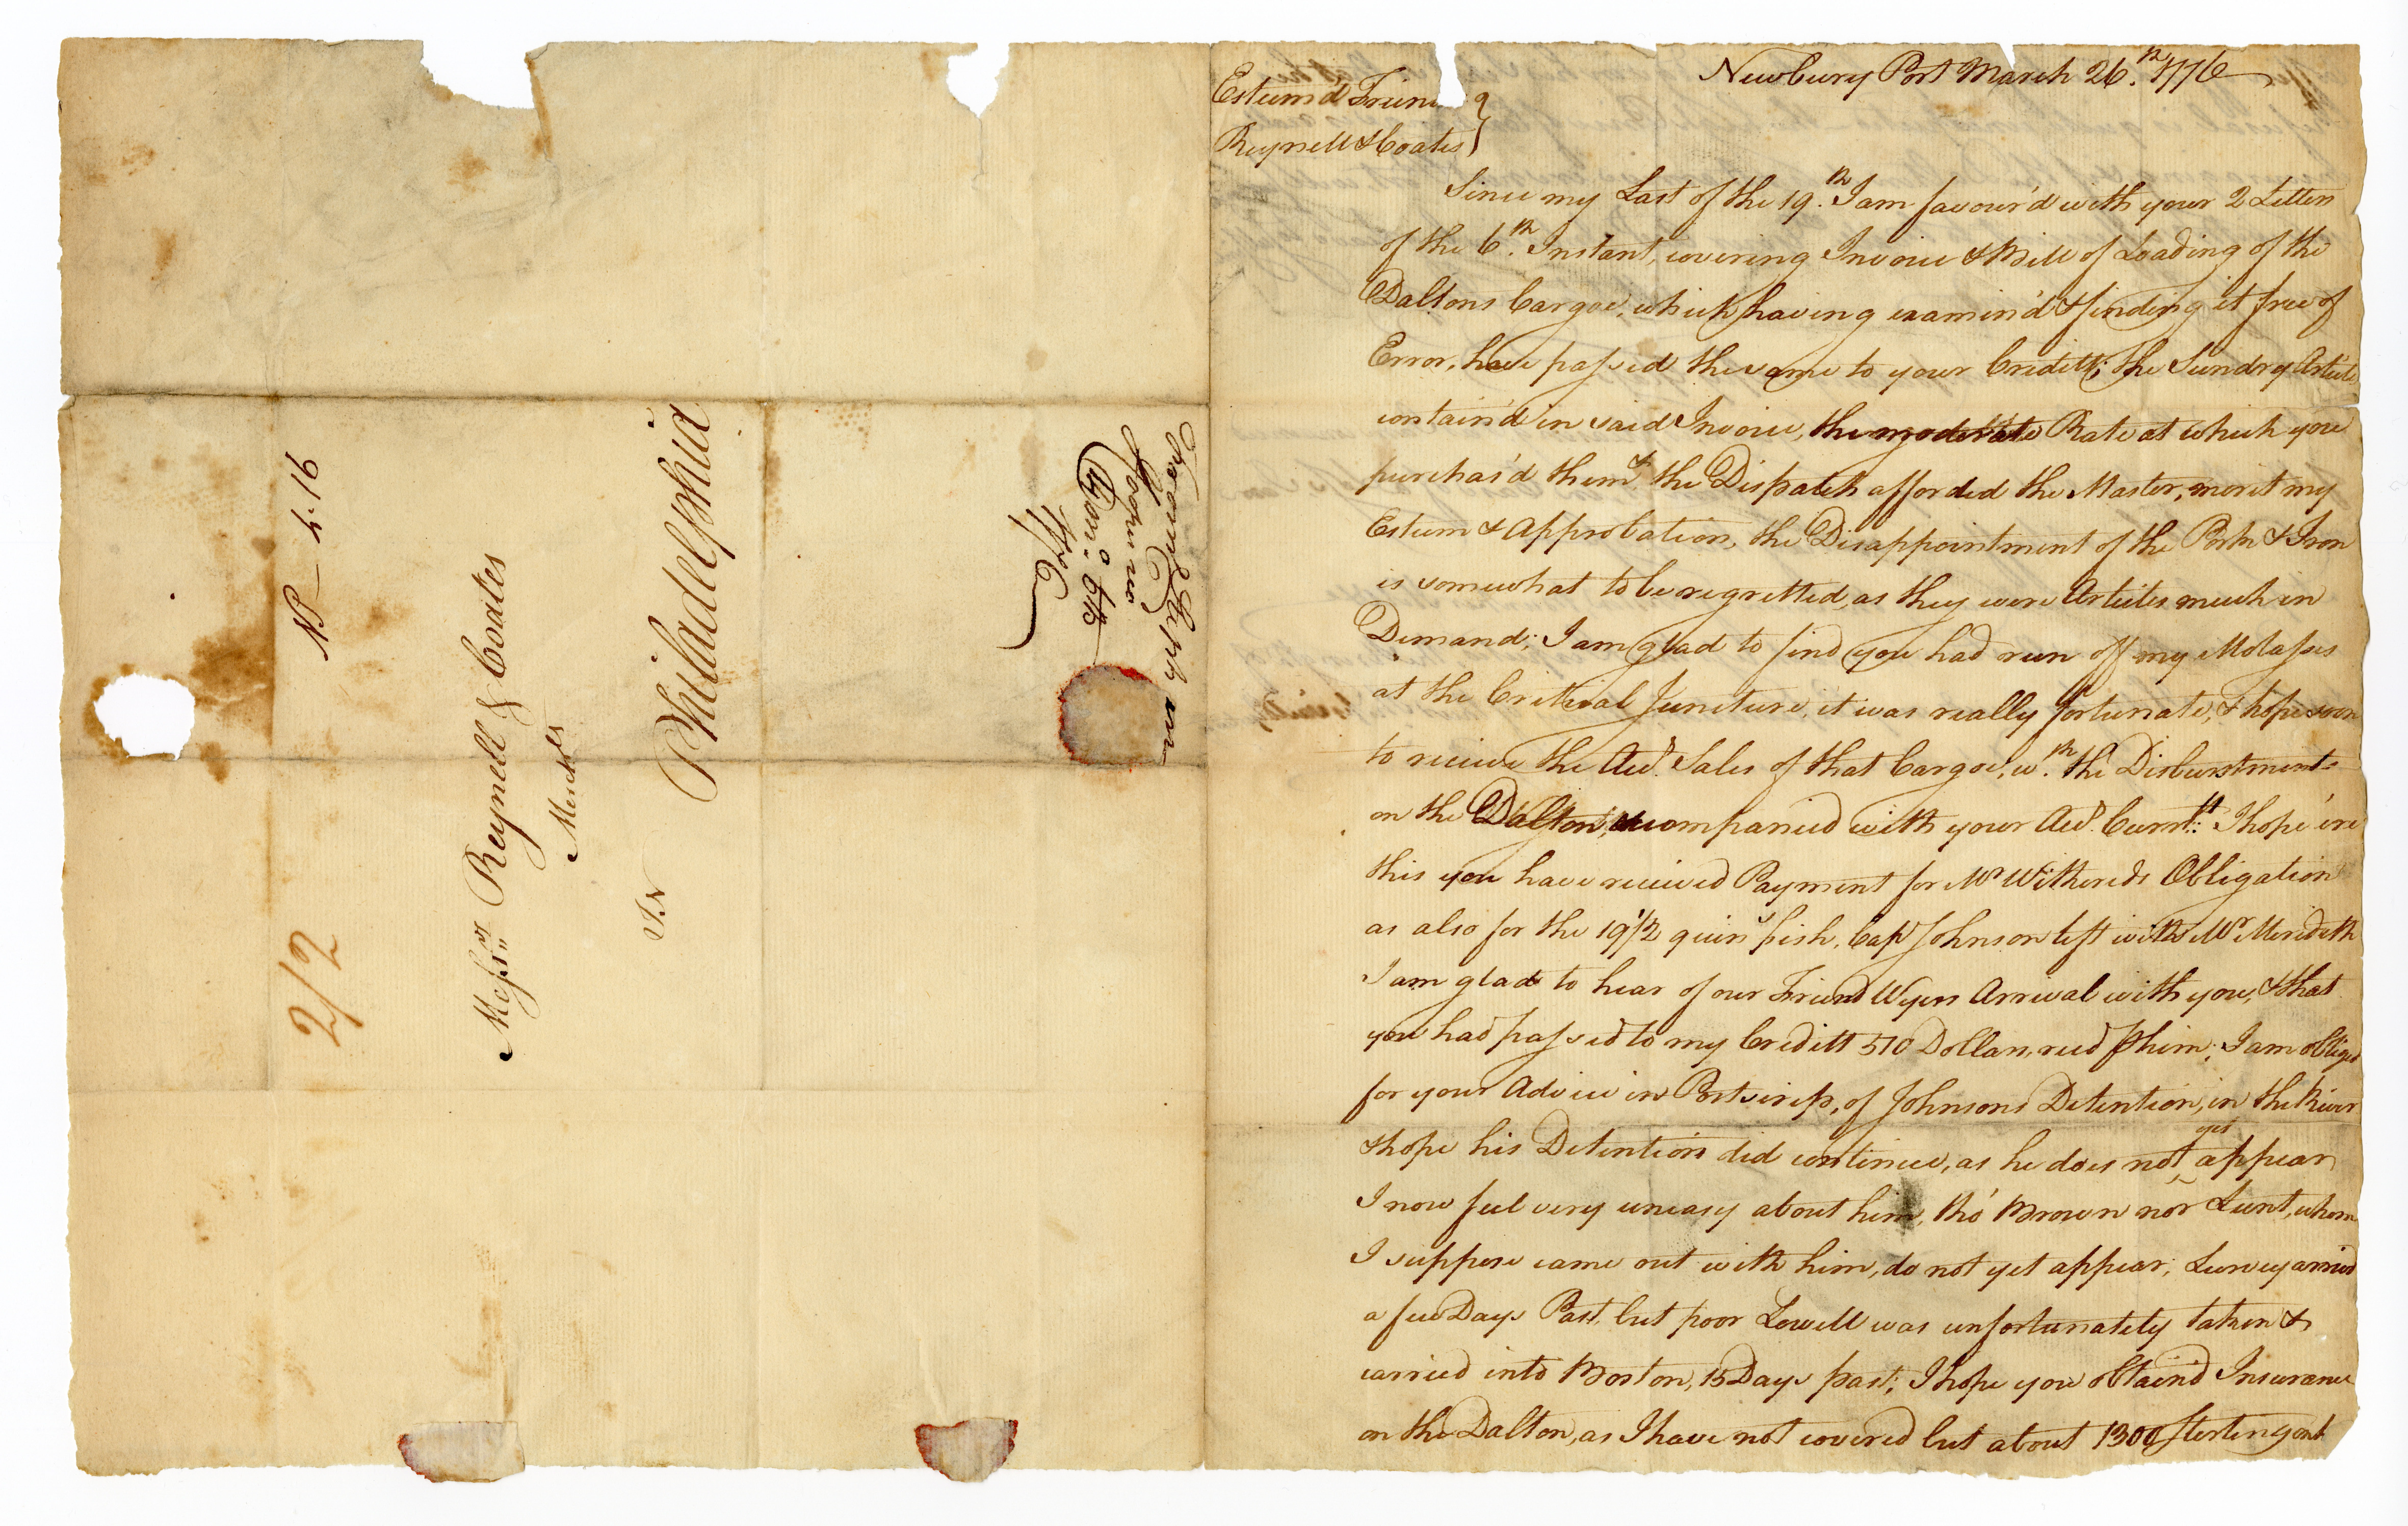 NP — 4.16
2/2
Messrs Reynell & Coates
Merchts
In
Philadelphia
Newbury Port March 26.th 1776
Esteem'd Frien
Reynell & Coates
Since my Last of the 19.th I am favour'd with your 2 Letters
of the 6.th Instant, covering Invoice & Bill of Loading of the
Daltons Cargoe, which having examin'd & finding it free of
Error, have passed the same to your Creditt; the Sundry Article
contain'd in said Invoice, the moderate Rate at which you
purchas'd them & the Dispatch afforded the Master, merit my
Esteem & Approbation, the Disappointment of the Pork & Iron
is somewhat to be regretted, as they were Articles much in
Demand; I am glad to find you had run off my Molasses
at the Critical Juncture, it was really fortunate, & hope soon
to receive the Acct. Sales of that Cargoe, w.th the Disburstments
on the Dalton, accompanied with your Acct. Currt: I hope 'ere
this you have received Payment for Mr Withereds Obligation
as also for the 19 1/2 quins fish, Capt Johnson left with Mr Meredith
I am glad to hear of our Friend Wyers Arrival with you, & that
you had passed to my Creditt 510 Dollars, recd ⅌ him; I am obliged
for your Advice in Postscrip, of Johnsons Detention, in the River
& hope his Detention did continue, as he does not yet appear
I now feel very uneasy about him, tho' Brown nor Lunt, whom
I suppose came out with him, do not yet appear; Lurvey arrived
a few Days Past, but poor Lowell was unfortunately taken &
carried into Boston, 15 Days past; I hope you obtain'd Insurance
on the Dalton, as I have not covered but about 1300 Sterling ont